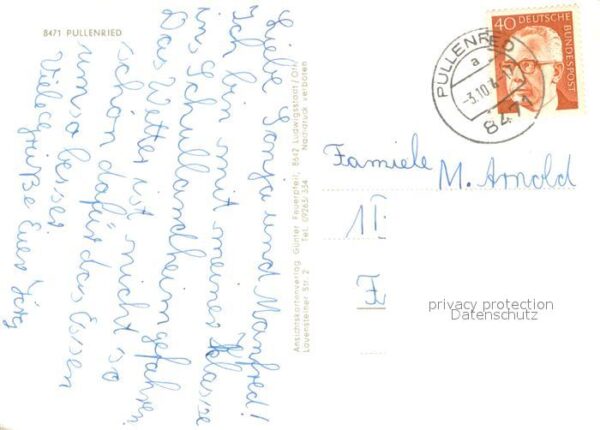 8471 PULLENRIED
Liebe Sonja und Manfred!
Ich bin mit meiner Klasse
ins Schullandheim gefahren.
Das Wetter ist nicht so
schön dafür das Essen
um so besser
Viele
grüße Euer Jörg
Ansichtskartenverlag Günter Feuerpfeil, 8642 Ludwigsstadt/Ofr.
Lauensteiner Str. 2 Tel. 09263/334 Nachdruck verboten
40 DEUTSCHE
BUNDESPOST
PULLENRIED
a
-3.10.
8471
Famiele
M. Arnold
privacy protection
Datenschutz